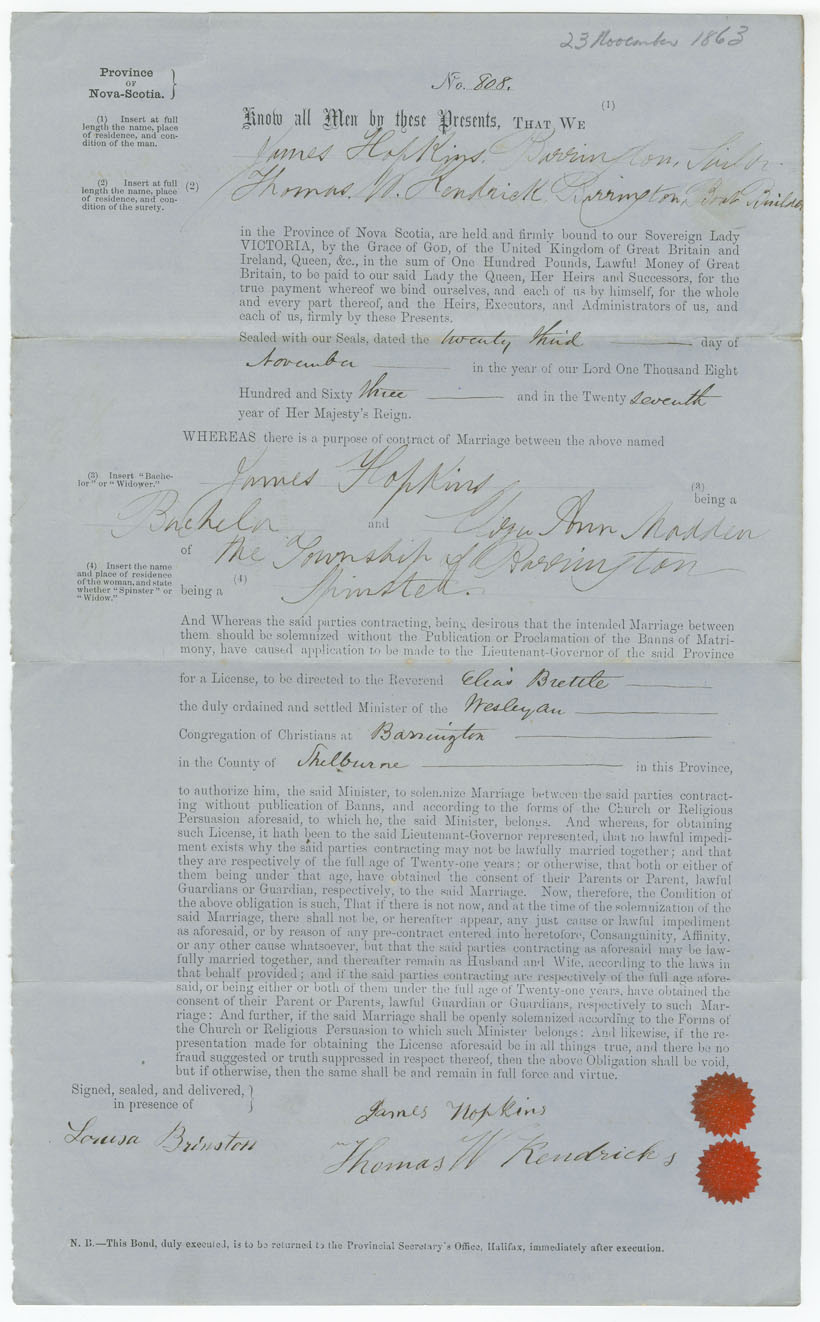 23 November 1863
Province
OF
Nova-Scotia.
No. 808.
(1) Insert at full
length the name, place
of residence, and con-
dition of the man.
Know all Men by these Presents, THAT WE (1)
James Hopkins. Barrington, Sailor.
(2) Insert at full
length the name, place
of residence, and con-
dition of the surety.
(2) Thomas. W. Kendrick Barrington, Boat Builder,
in the Province of Nova Scotia, are held and firmly bound to our Sovereign Lady
VICTORIA, by the Grace of GOD, of the United Kingdom of Great Britain and
Ireland, Queen, &c., in the sum of One Hundred Pounds, Lawful Money of Great
Britain, to be paid to our said Lady the Queen, Her Heirs and Successors, for the
true payment whereof we bind ourselves, and each of us by himself, for the whole
and every part thereof, and the Heirs, Executors, and Administrators of us, and
each of us, firmly by these Presents.
Sealed with our Seals, dated the twenty third day of
November in the year of our Lord One Thousand Eight
Hundred and Sixty three and in the Twenty seventh
year of Her Majesty's Reign.
WHEREAS there is a purpose of contract of Marriage between the above named
(3) Insert "Bache-
lor" or "Widower."
James Hopkins (3) being a
Bachelor and Ann Madden
of the Township of Barrington
(4) Insert the name
and place of residence
of the woman, and state
whether "Spinster" or
"Widow."
being a (4) Spinster.
And Whereas the said parties contracting, being desirous that the intended Marriage between
them should be solemnized without the Publication or Proclamation of the Banns of Matri-
mony, have caused application to be made to the Lieutenant-Governor of the said Province
for a License, to be directed to the Reverend Elias Brettle
the duly ordained and settled Minister of the Wesleyan
Congregation of Christians at Barrington
in the County of Shelburne in this Province,
to authorize him, the said Minister, to solemnize Marriage between the said parties contract-
ing without publication of Banns, and according to the forms of the Church or Religious
Persuasion aforesaid, to which he, the said Minister, belongs. And whereas, for obtaining
such License, it hath been to the said Lieutenant-Governor represented, that no lawful impedi-
ment exists why the said parties contracting may not be lawfully married together; and that
they are respectively of the full age of Twenty-one years; or otherwise, that both or either of
them being under that age, have obtained the consent of their Parents or Parent, lawful
Guardians or Guardian, respectively, to the said Marriage. Now, therefore, the Condition of
the above obligation is such, That if there is not now, and at the time of the solemnization of the
said Marriage, there shall not be, or hereafter appear, any just cause or lawful impediment
as aforesaid, or by reason of any pre-contract entered into heretofore, Consanguinity, Affinity,
or any other cause whatsoever, but that the said parties contracting as aforesaid may be law-
fully married together, and thereafter remain as Husband and Wife, according to the laws in
that behalf provided; and if the said parties contracting are respectively of the full age afore-
said, or being either or both of them under the full age of Twenty-one years, have obtained the
consent of their Parent or Parents, lawful Guardian or Guardians, respectively to such Mar-
riage: And further, if the said Marriage shall be openly solemnized according to the Forms of
the Church or Religious Persuasion to which such Minister belongs: And likewise, if the re-
presentation made for obtaining the License aforesaid be in all things true, and there be no
fraud suggested or truth suppressed in respect thereof, then the above Obligation shall be void,
but if otherwise, then the same shall be and remain in full force and virtue.
Signed, sealed, and delivered,
in presence of
James Hopkins
Louisa Brinston
Thomas W Kendricks
N. B.—This Bond, duly executed, is to be returned to the Provincial Secretary's Office, Halifax, immediately after execution.